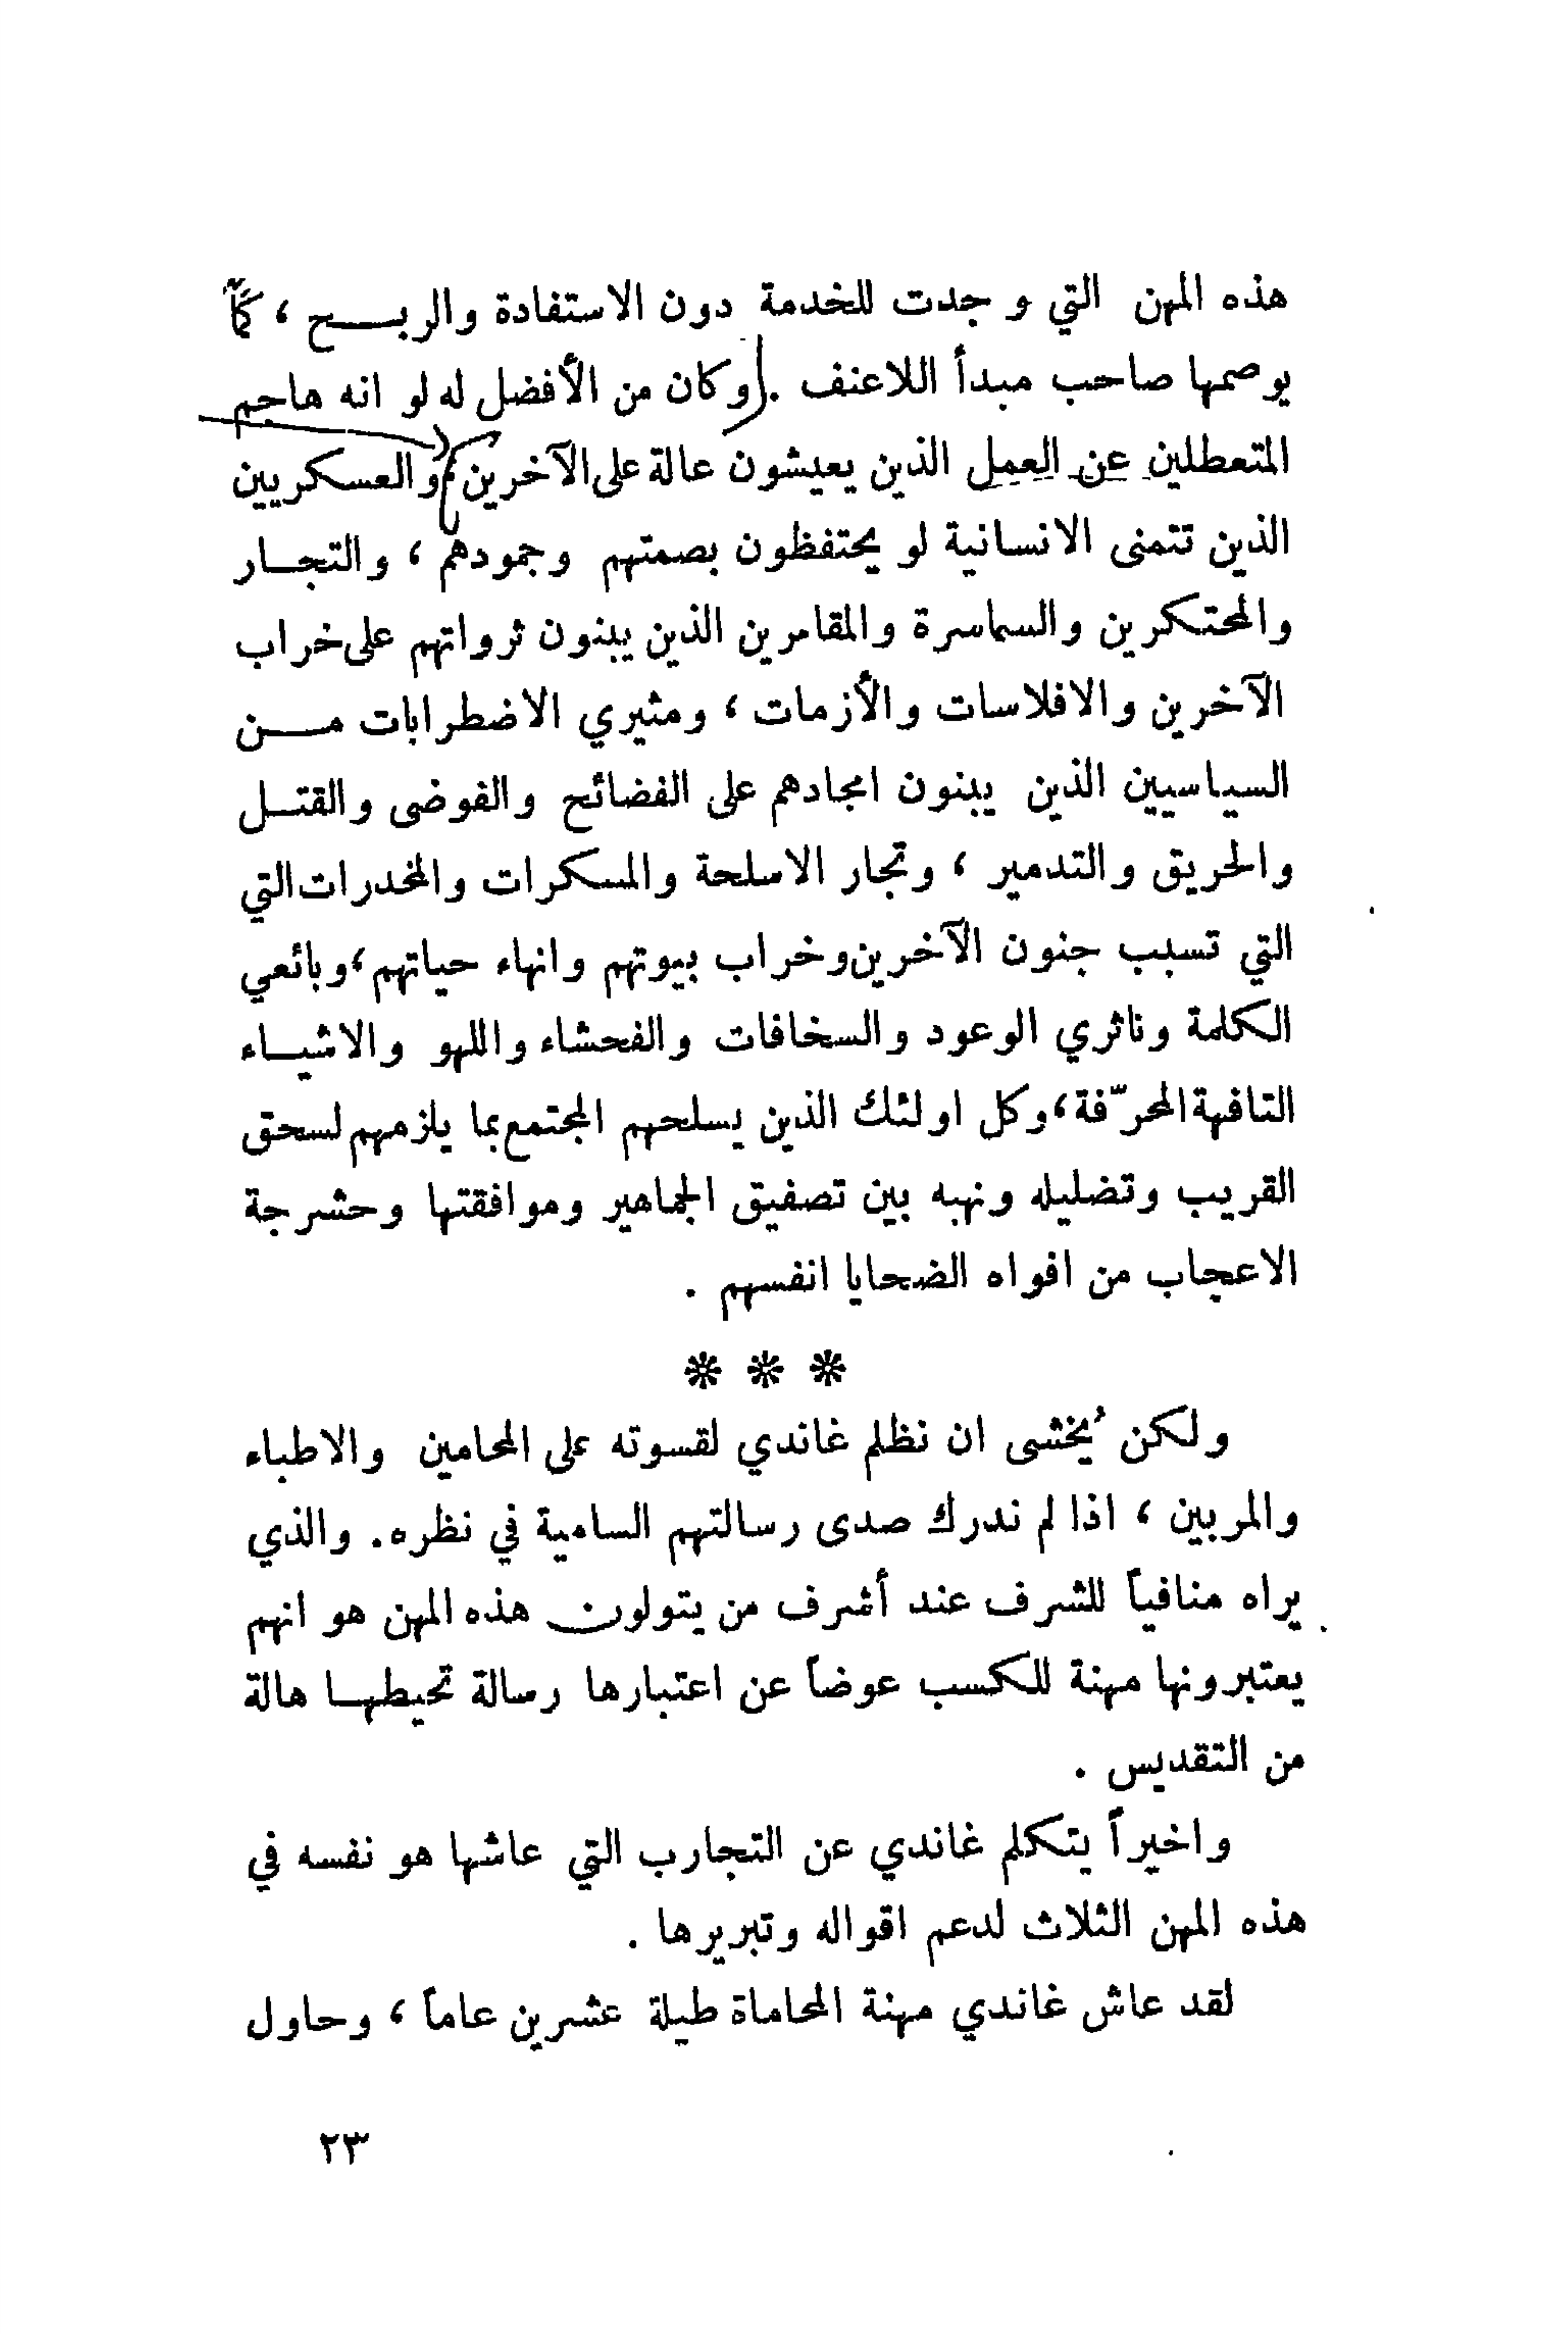 هذه المهن التي وجدت للخدمة دون الاستفادة والربـــح ، كما
يوصمها صاحب مبدأ اللاعنف . وكان من الأفضل له لو انه هاجم
المتعطلين عن العمل الذين يعيشون عالة على الآخرين ، والعسكريين
الذين تتمنى الانسانية لو يحتفظون بصمتهم وجمودهم ، والتجـار
والمحتكرين والسماسرة والمقامرين الذين يبنون ثرواتهم على خراب
الآخرين والافلاسات والأزمات ، ومثيري الاضطرابات مــن
السياسيين الذين يبنون امجادهم على الفضائح والفوضى والقتـل
والحريق والتدمير ، وتجار الاسلحة والمسكرات والمخدرات التي
التي تسبب جنون الآخرين وخراب بيوتهم وانهاء حياتهم ، وبائعي
الكلمة وناثري الوعود والسخافات والفحشاء واللهو والاشيـاء
التافهة المحرّفة ، وكل اولئك الذين يسلحهم المجتمع بما يلزمهم لسحق
القريب وتضليله ونهبه بين تصفيق الجماهير وموافقتها وحشرجة
الاعجاب من افواه الضحايا انفسهم .
* * *
ولكن يُخشى ان نظلم غاندي لقسوته على المحامين والاطباء
والمربين ، اذا لم ندرك صدى رسالتهم السامية في نظره . والذي
يراه منافياً للشرف عند أشرف من يتولون هذه المهن هو انهم
يعتبرونها مهنة للكسب عوضاً عن اعتبارها رسالة تحيطهـا هالة
من التقديس .
واخيراً يتكلم غاندي عن التجارب التي عاشها هو نفسه في
هذه المهن الثلاث لدعم اقواله وتبريرها .
لقد عاش غاندي مهنة المحاماة طيلة عشرين عاماً ، وحاول
٢٣